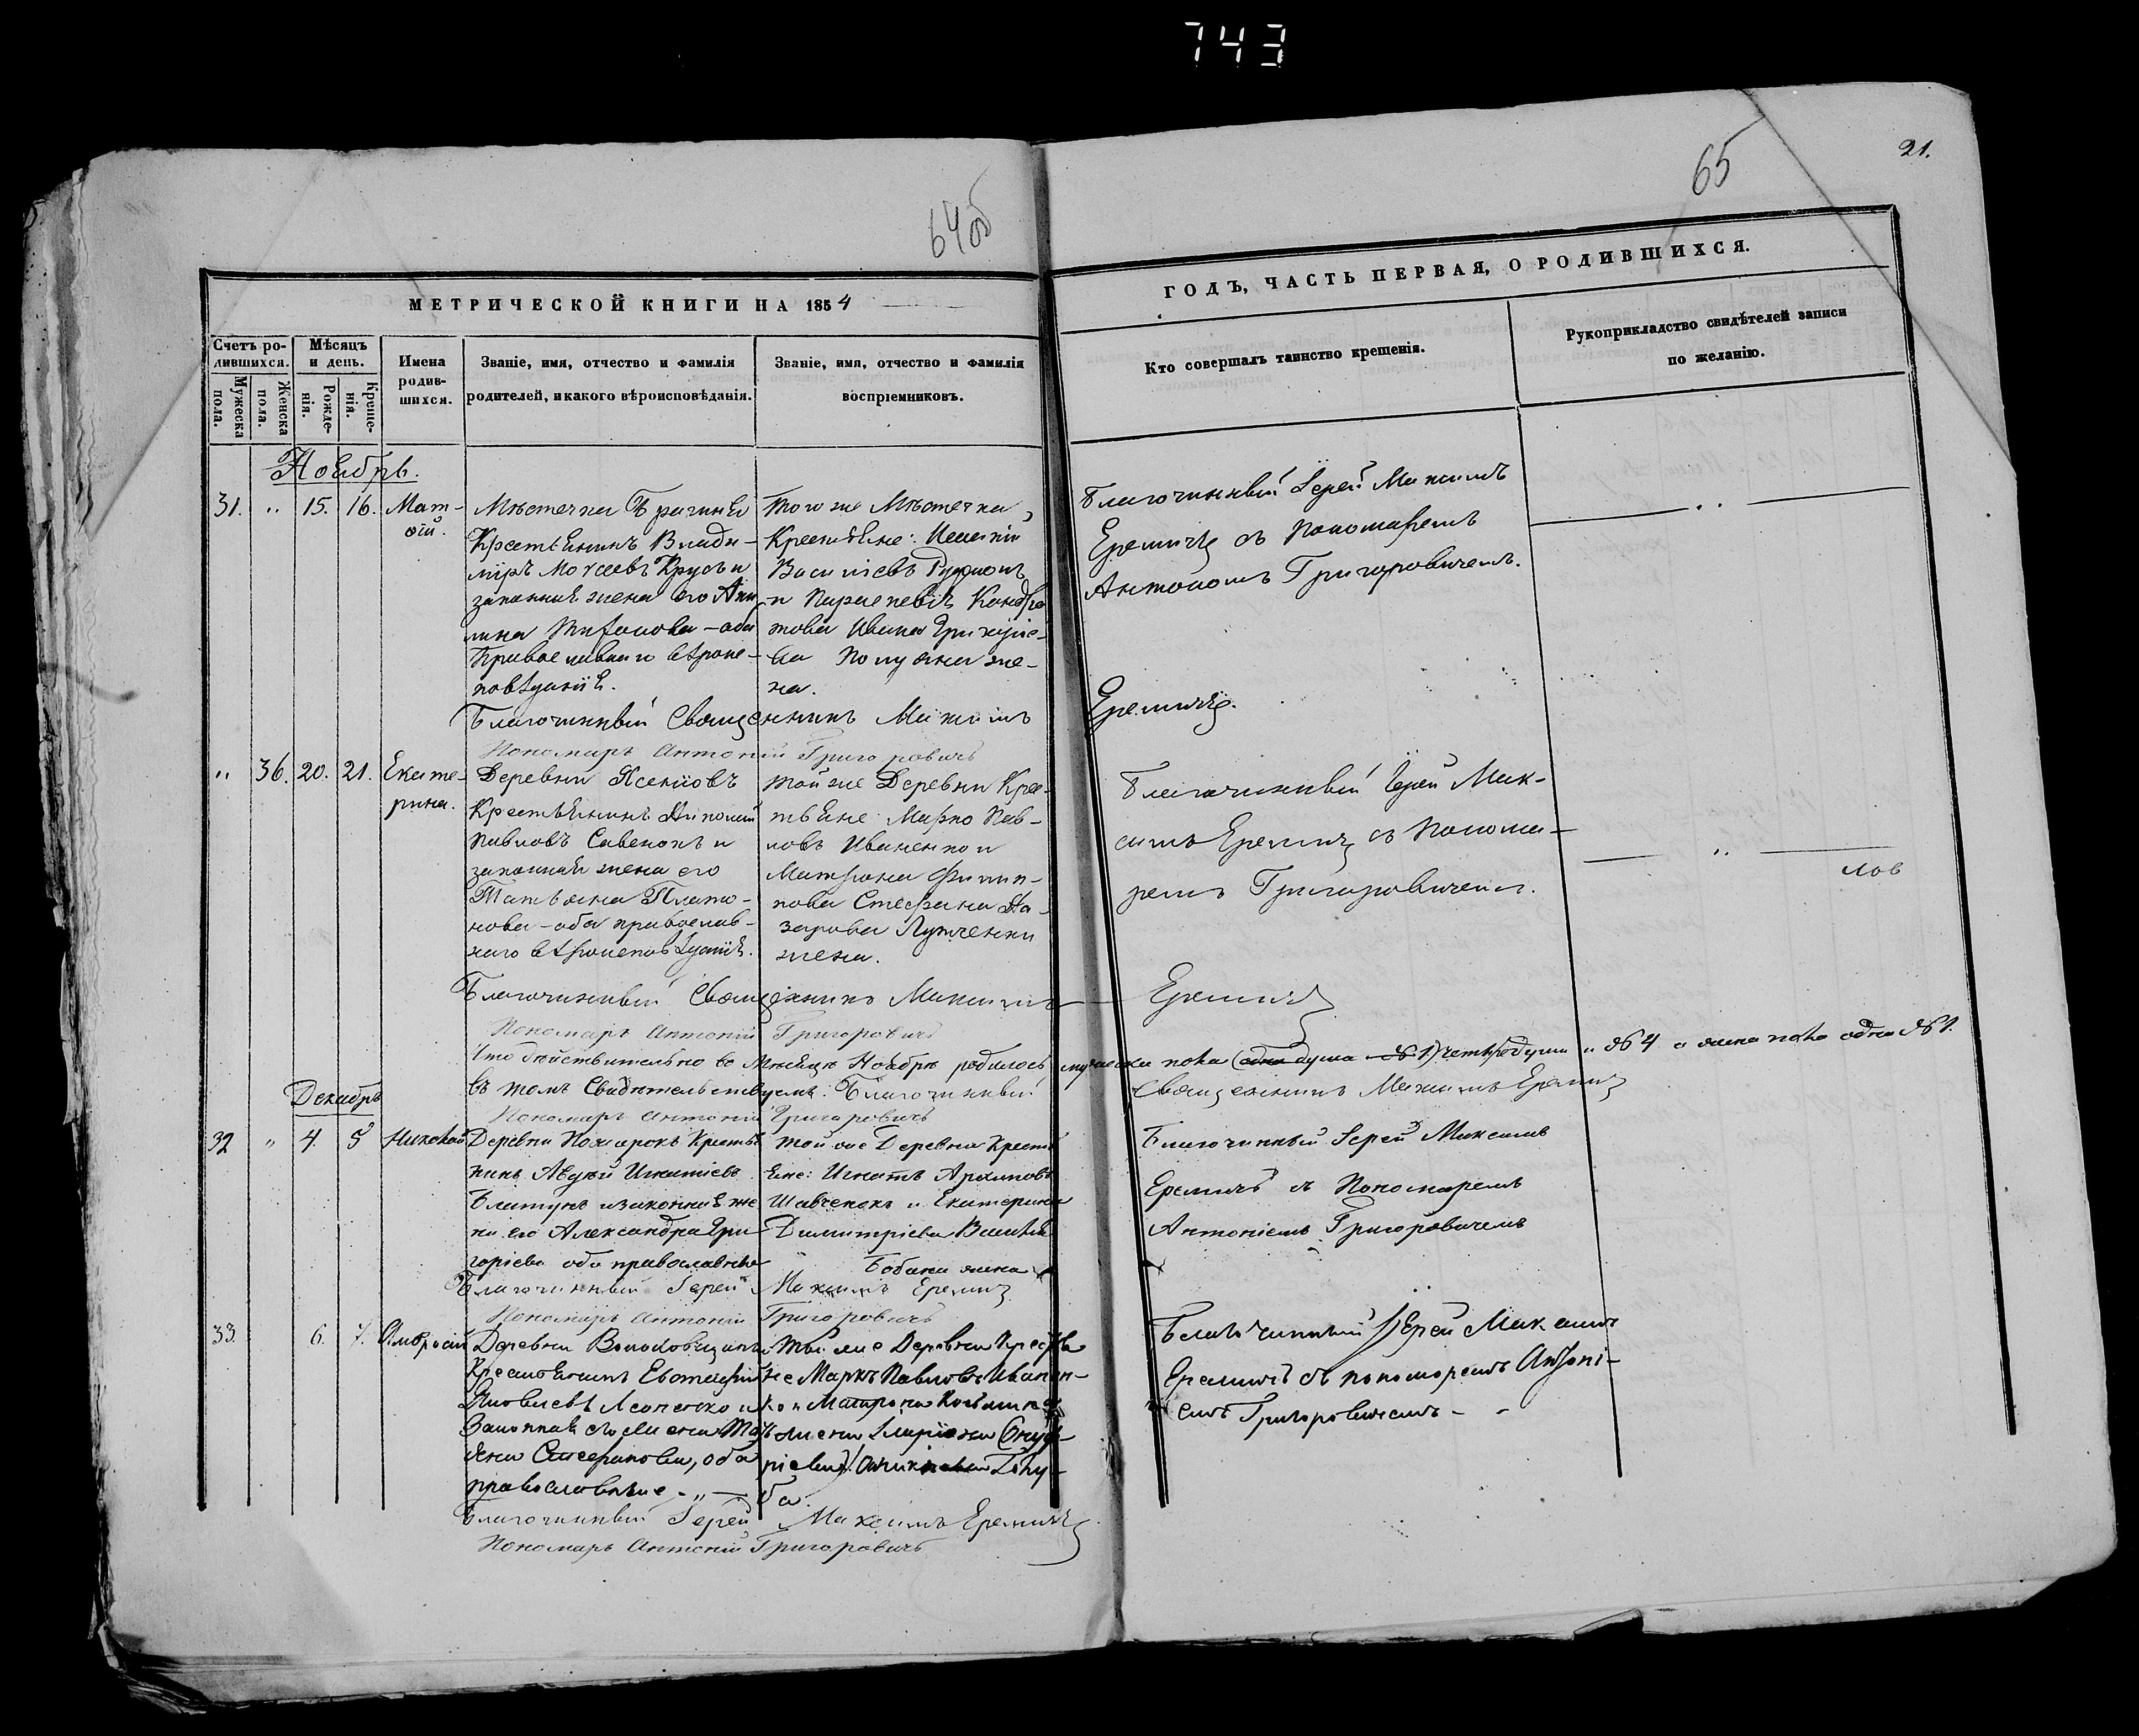 743
64об
65
21.
МЕТРИЧЕСКОЙ КНИГИ НА 1854
ГОДЪ, ЧАСТЬ ПЕРВАЯ, О РОДИВШИХСЯ.
Счетъ ро-
дившихся.
Мужеска
пола.
Женска
пола.
Мѣсяцъ
и день.
Рожде-
нія.
Креще-
нія.
Имена
родив-
шихся.
Званіе, имя, отчество и фамилія
родителей, и какого вѣроисповѣданія.
Званіе, имя, отчество и фамилія
воспріемниковъ.
Кто совершалъ таинство крещенія.
Рукоприкладство свидѣтелей записи
по желанію.
Ноябрь.
31. " 15. 16. Мат-
ѳій.
Мѣстечка Брагина
Крестьянинъ Влади-
міръ Моисеевъ и
законная жена его Аки-
лина оба
Православнаго вѣроис-
повѣданія.
Того же Мѣстечка
Крестьяне:
Васильевъ
и Параскевія Кондра
това Ивана Григоріе-
ва же-
на.
Благочинный Іерей Максимъ
Еремичъ съ Пономаремъ
Антономъ Григоровичемъ.
Благочинный Священникъ Максимъ Еремичъ.
Пономарь Антоній Григоровичъ
" 36. 20. 21. Екате-
рина.
Деревни
Крестьянинъ
Павловъ Савенокъ и
законная жена его
Татьяна Плато-
нова - оба православ-
наго вѣроисповѣданія.
Той же Деревни Крес-
тьяне: Марко Пав-
ловъ Иваненко и
Матрона Филип-
пова Стефана На-
зарова
жена.
Благочинный Іерей Мак-
симъ Еремичъ съ Понома-
ремъ Григоровичемъ.
Благочинный Священникъ Максимъ Еремичъ
Пономарь Антоній Григоровичъ
Что дѣйствительно въ Мѣсяцѣ Ноябрѣ родилось мужеска пола (одна душа №1) четыре души №4 и женска пола одна №1.
въ томъ Свидѣтельствуемъ: Благочинный Священникъ Максимъ Еремичъ
Пономарь Антоній Григоровичъ
Декабрь
32 " 4. 5 Николай
Деревни Крестья
нинъ Игнатіевъ
и законная же
на его Александра Гри
горіева оба православные
Той же Деревни Крестья
не: Игнатъ Архиповъ
Шавченокъ и Екатерина
Димитріева
жена
Благочинный Іерей Максимъ
Еремичъ съ Пономаремъ
Антоніемъ Григоровичемъ
Благочинный Іерей Максимъ Еремичъ
Пономарь Антоній Григоровичъ
33. 6. 7. Амвросій
Деревни
Крестьянинъ Евстафій
Яковлевъ и
Законная его жена Тать
яна Стефанова, оба
православные
Той же Деревни Крестья
не Маркъ Павловъ Иванен-
ко и Матрона
Благочинный Іерей Максимъ
Еремичъ съ пономоремъ Антоні-
емъ Григоровичемъ
Благочинный Іерей Максимъ Еремичъ
Пономарь Антоній Григоровичъ